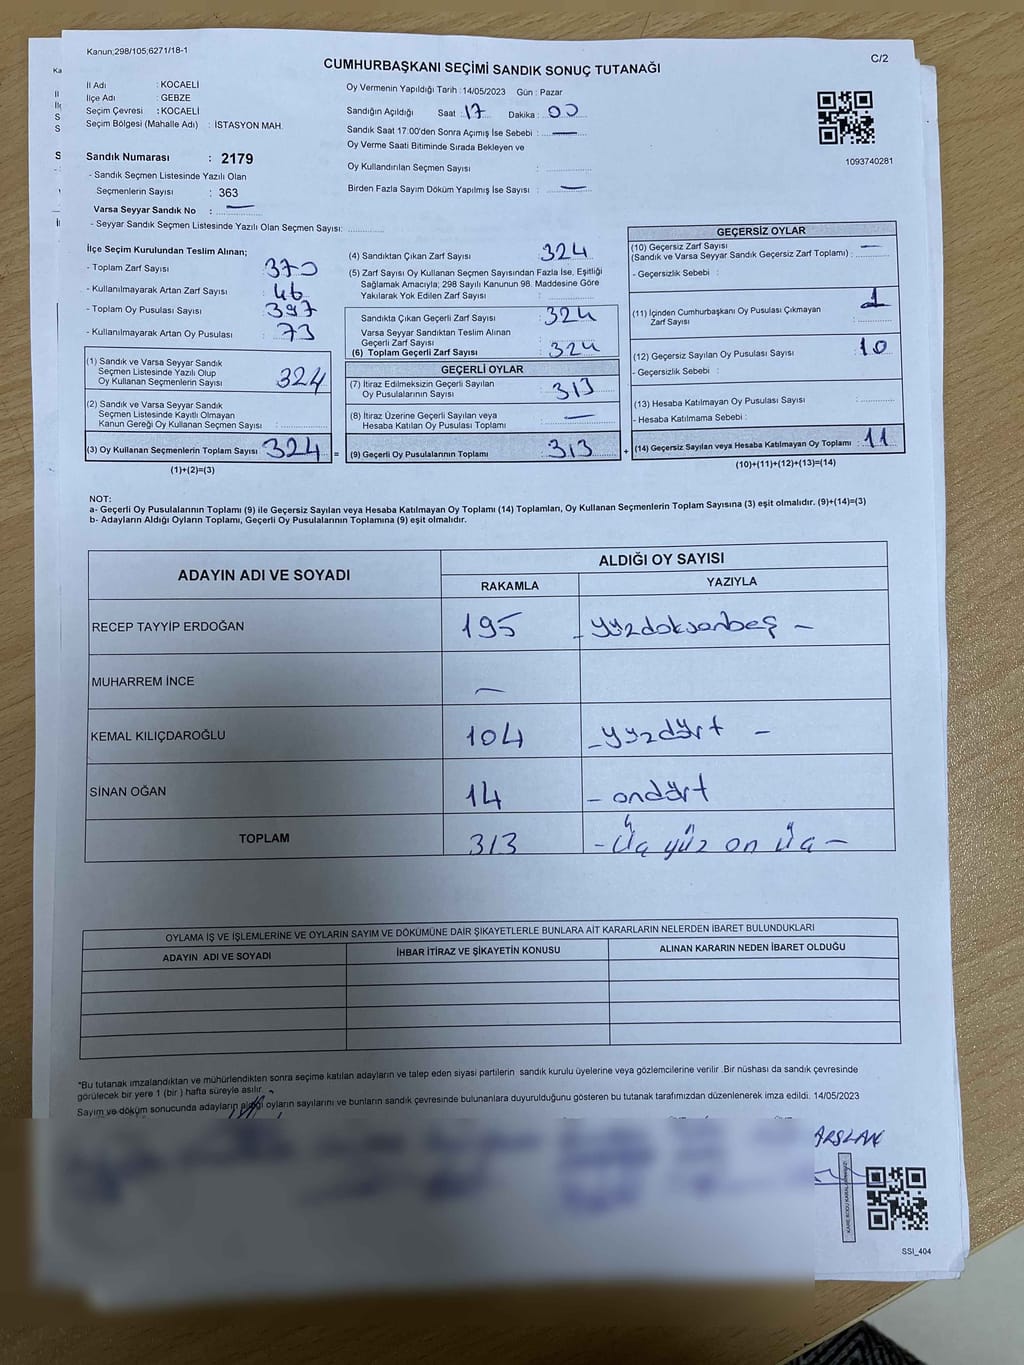 Kanun;298/105;6271/18-1
C/2
CUMHURBAŞKANI SEÇİMİ SANDIK SONUÇ TUTANAĞI
İl Adı : KOCAELİ
İlçe Adı : GEBZE
Seçim Çevresi : KOCAELİ
Seçim Bölgesi (Mahalle Adı) : İSTASYON MAH.
Sandık Numarası : 2179
- Sandık Seçmen Listesinde Yazılı Olan
Seçmenlerin Sayısı : 363
Varsa Seyyar Sandık No : —
- Seyyar Sandık Seçmen Listesinde Yazılı Olan Seçmen Sayısı:
Oy Vermenin Yapıldığı Tarih : 14/05/2023 Gün : Pazar
Sandığın Açıldığı Saat : 17 Dakika : 00
Sandık Saat 17.00'den Sonra Açımış İse Sebebi : —
Oy Verme Saati Bitiminde Sırada Bekleyen ve
Oy Kullandırılan Seçmen Sayısı :
Birden Fazla Sayım Döküm Yapılmış İse Sayısı : —
1093740281
İlçe Seçim Kurulundan Teslim Alınan;
- Toplam Zarf Sayısı : 370
- Kullanılmayarak Artan Zarf Sayısı : 46
- Toplam Oy Pusulası Sayısı : 397
- Kullanılmayarak Artan Oy Pusulası : 73
(1) Sandık ve Varsa Seyyar Sandık
Seçmen Listesinde Yazılı Olup
Oy Kullanan Seçmenlerin Sayısı : 324
(2) Sandık ve Varsa Seyyar Sandık
Seçmen Listesinde Kayıtlı Olmayan
Kanun Gereği Oy Kullanan Seçmen Sayısı :
(3) Oy Kullanan Seçmenlerin Toplam Sayısı : 324 =
(1)+(2)=(3)
(4) Sandıktan Çıkan Zarf Sayısı : 324
(5) Zarf Sayısı Oy Kullanan Seçmen Sayısından Fazla İse, Eşitliği
Sağlamak Amacıyla; 298 Sayılı Kanunun 98. Maddesine Göre
Yakılarak Yok Edilen Zarf Sayısı :
Sandıkta Çıkan Geçerli Zarf Sayısı : 324
Varsa Seyyar Sandıktan Teslim Alınan
Geçerli Zarf Sayısı :
(6) Toplam Geçerli Zarf Sayısı : 324
GEÇERLİ OYLAR
(7) İtiraz Edilmeksizin Geçerli Sayılan
Oy Pusulalarının Sayısı : 313
(8) İtiraz Üzerine Geçerli Sayılan veya
Hesaba Katılan Oy Pusulası Toplamı : —
(9) Geçerli Oy Pusulalarının Toplamı : 313 +
GEÇERSİZ OYLAR
(10) Geçersiz Zarf Sayısı
(Sandık ve Varsa Seyyar Sandık Geçersiz Zarf Toplamı) : —
- Geçersizlik Sebebi :
(11) İçinden Cumhurbaşkanı Oy Pusulası Çıkmayan
Zarf Sayısı : 1
(12) Geçersiz Sayılan Oy Pusulası Sayısı : 10
- Geçersizlik Sebebi :
(13) Hesaba Katılmayan Oy Pusulası Sayısı :
- Hesaba Katılmama Sebebi :
(14) Geçersiz Sayılan veya Hesaba Katılmayan Oy Toplamı : 11
(10)+(11)+(12)+(13)=(14)
NOT:
a- Geçerli Oy Pusulalarının Toplamı (9) ile Geçersiz Sayılan veya Hesaba Katılmayan Oy Toplamı (14) Toplamları, Oy Kullanan Seçmenlerin Toplam Sayısına (3) eşit olmalıdır. (9)+(14)=(3)
b- Adayların Aldığı Oyların Toplamı, Geçerli Oy Pusulalarının Toplamına (9) eşit olmalıdır.
ADAYIN ADI VE SOYADI ALDIĞI OY SAYISI
RAKAMLA YAZIYLA
RECEP TAYYİP ERDOĞAN 195 - yüzdoksanbeş -
MUHARREM İNCE —
KEMAL KILIÇDAROĞLU 104 - yüzdört -
SİNAN OĞAN 14 - ondört
TOPLAM 313 - Üç yüz on üç -
OYLAMA İŞ VE İŞLEMLERİNE VE OYLARIN SAYIM VE DÖKÜMÜNE DAİR ŞİKAYETLERLE BUNLARA AİT KARARLARIN NELERDEN İBARET BULUNDUKLARI
ADAYIN ADI VE SOYADI İHBAR İTİRAZ VE ŞİKAYETİN KONUSU ALINAN KARARIN NEDEN İBARET OLDUĞU
*Bu tutanak imzalandıktan ve mühürlendikten sonra seçime katılan adayların ve talep eden siyasi partilerin sandık kurulu üyelerine veya gözlemcilerine verilir .Bir nüshası da sandık çevresinde
görülecek bir yere 1 (bir ) hafta süreyle asılır.
Sayım ve döküm sonucunda adayların aldığı oyların sayılarını ve bunların sandık çevresinde bulunanlara duyurulduğunu gösteren bu tutanak tarafımızdan düzenlenerek imza edildi. 14/05/2023
ARSLAN
SSI_404